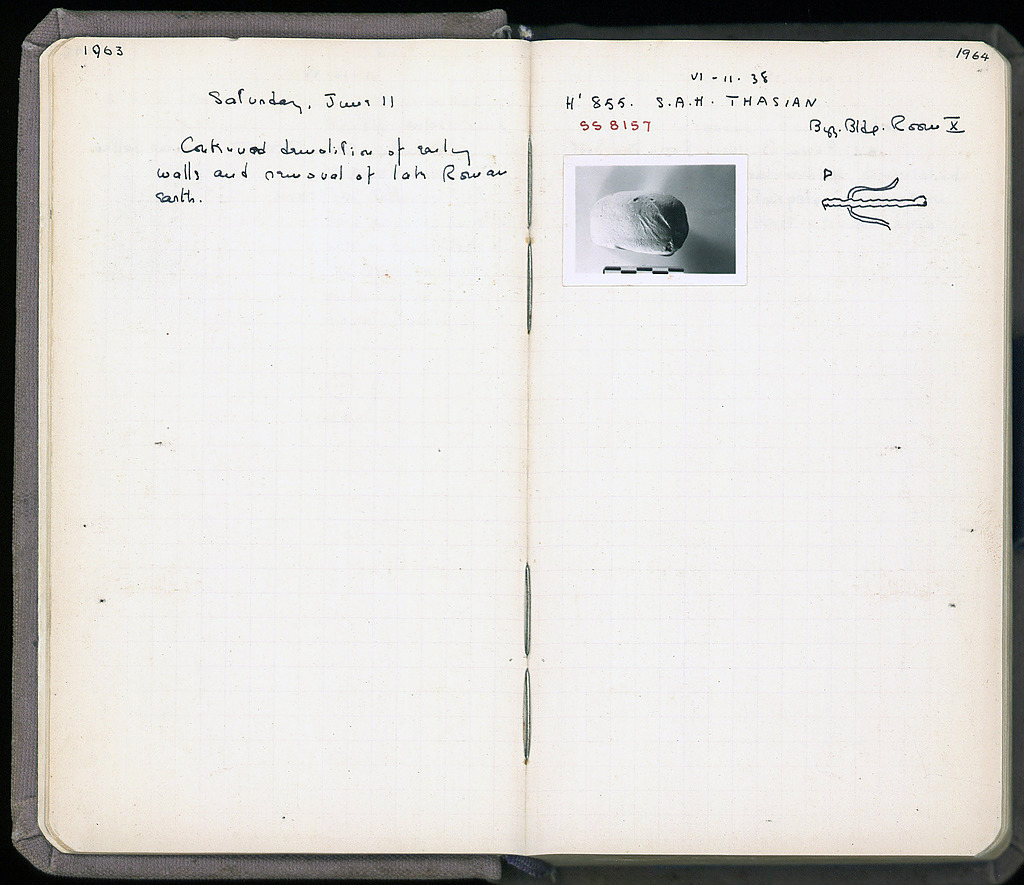 1963
Saturday, June 11
Continued demolition of early
walls and removal of late Roman
earth.
1964
VI - 11 - 38
H' 855. S.A.H. THASIAN
SS 8157
Byz. Bldg. Room X
P